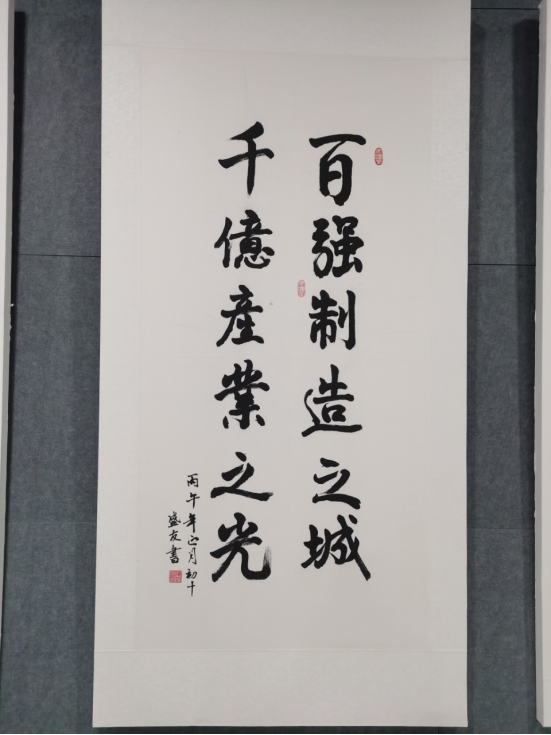 百强制造之城
千億產業之光
丙午年正月初十
盛友書